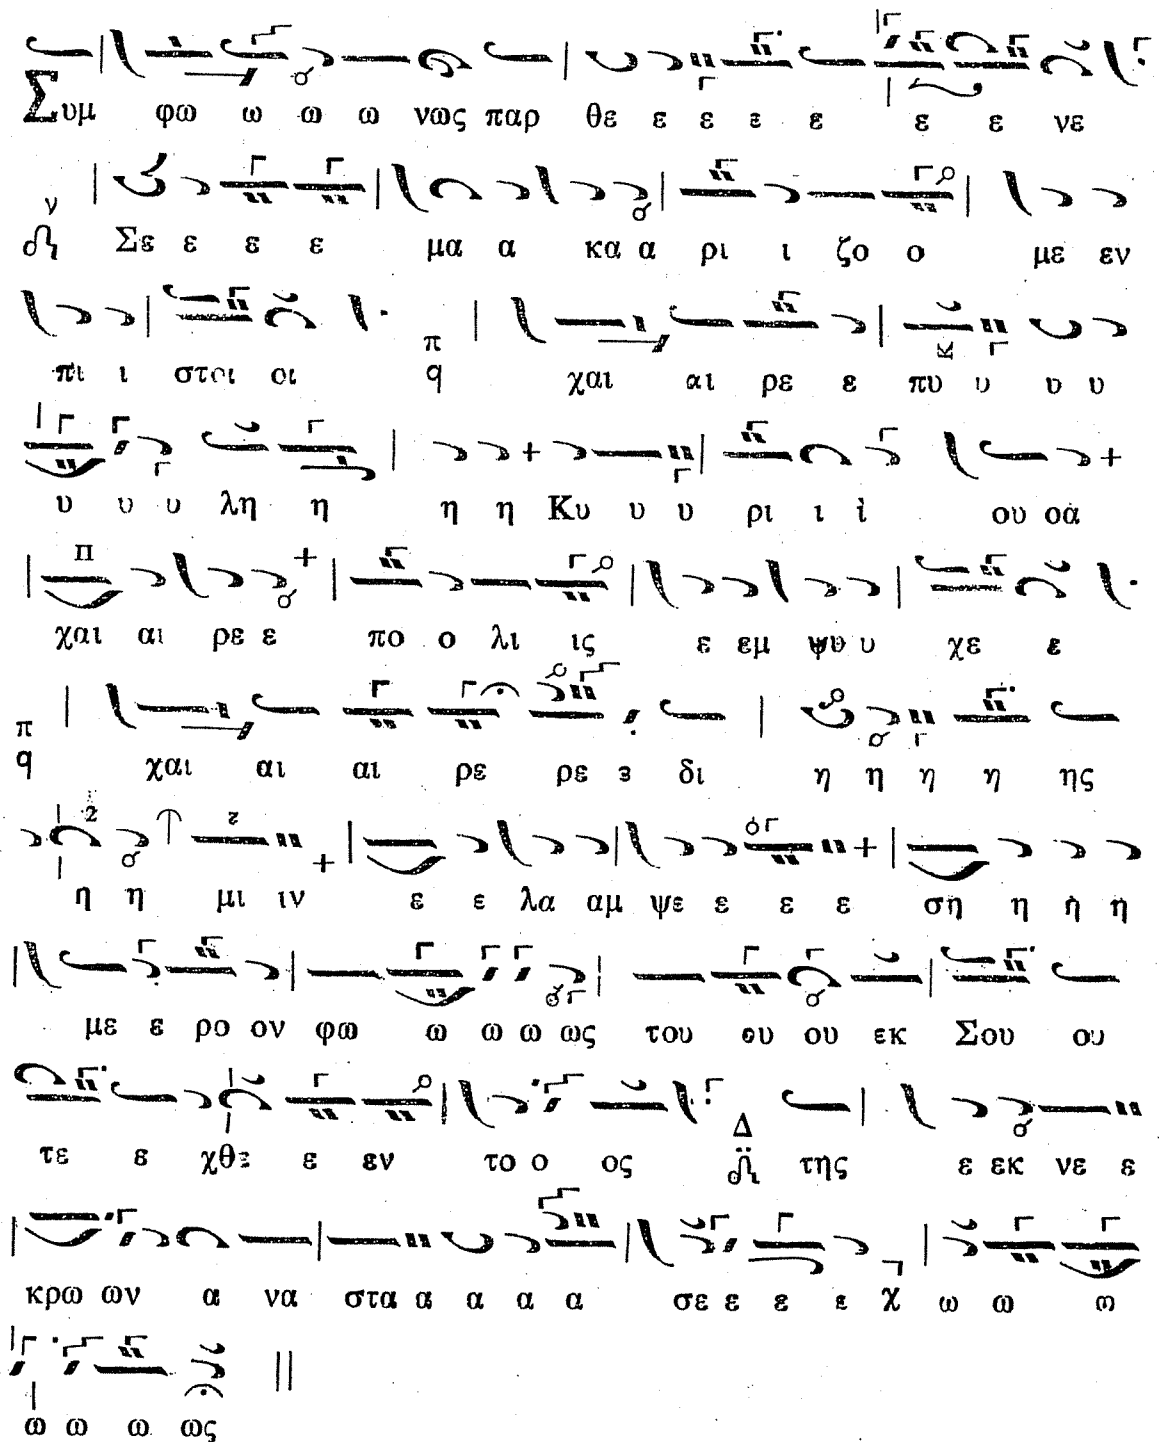 Συμ φω ω ω ω νως παρ θε ε ε ε ε ε ε νε
ν Σε ε ε ε μα α κα α ρι ι ζο ο με εν
πι ι στοι οι π q χαι αι ρε ε πυ υ υ υ
υ υ υ λη η η η Κυ υ υ ρι ι ὶ ου οὰ
χαι αι ρε ε πο ο λι ις ε εμ ψυ υ χε ε
π q χαι αι αι ρε ρε ε δι η η η η ης
η η μι ιν ε ε λα αμ ψε ε ε ε ση η η η
με ε ρο ον φω ω ω ω ως του ου ου εκ Σου ου
τε ε χθε ε εν το ο ος Δ της ε εκ νε ε
κρω ων α να στα α α α α σε ε ε ε χ ω ω ω
ω ω ω ως